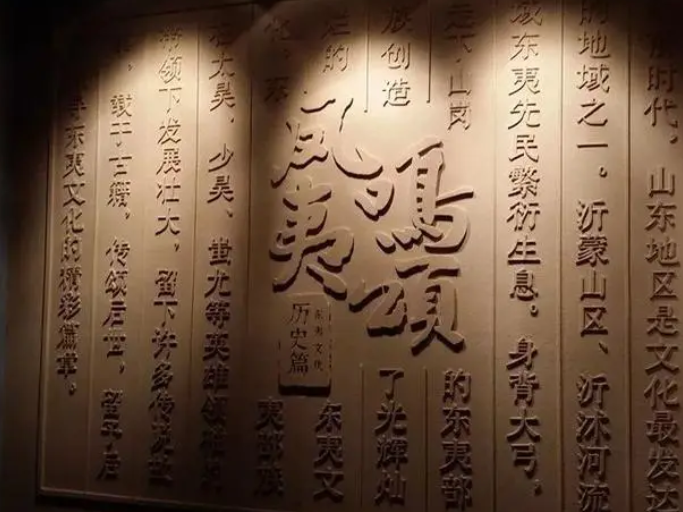 时代，山东地区是文化最发达
的地域之一。沂蒙山区、沂沭河流
域东夷先民繁衍生息。身背大弓，
走下山岗的东夷部
族创造了光辉灿
烂的东夷文
化，东夷部族
在太昊、少昊、蚩尤等英雄领袖的
带领下发展壮大，留下许多传说故
，载于古籍，传颂后世，留予后
寻东夷文化的精彩篇章。
凤夷
鸣頌
历史篇